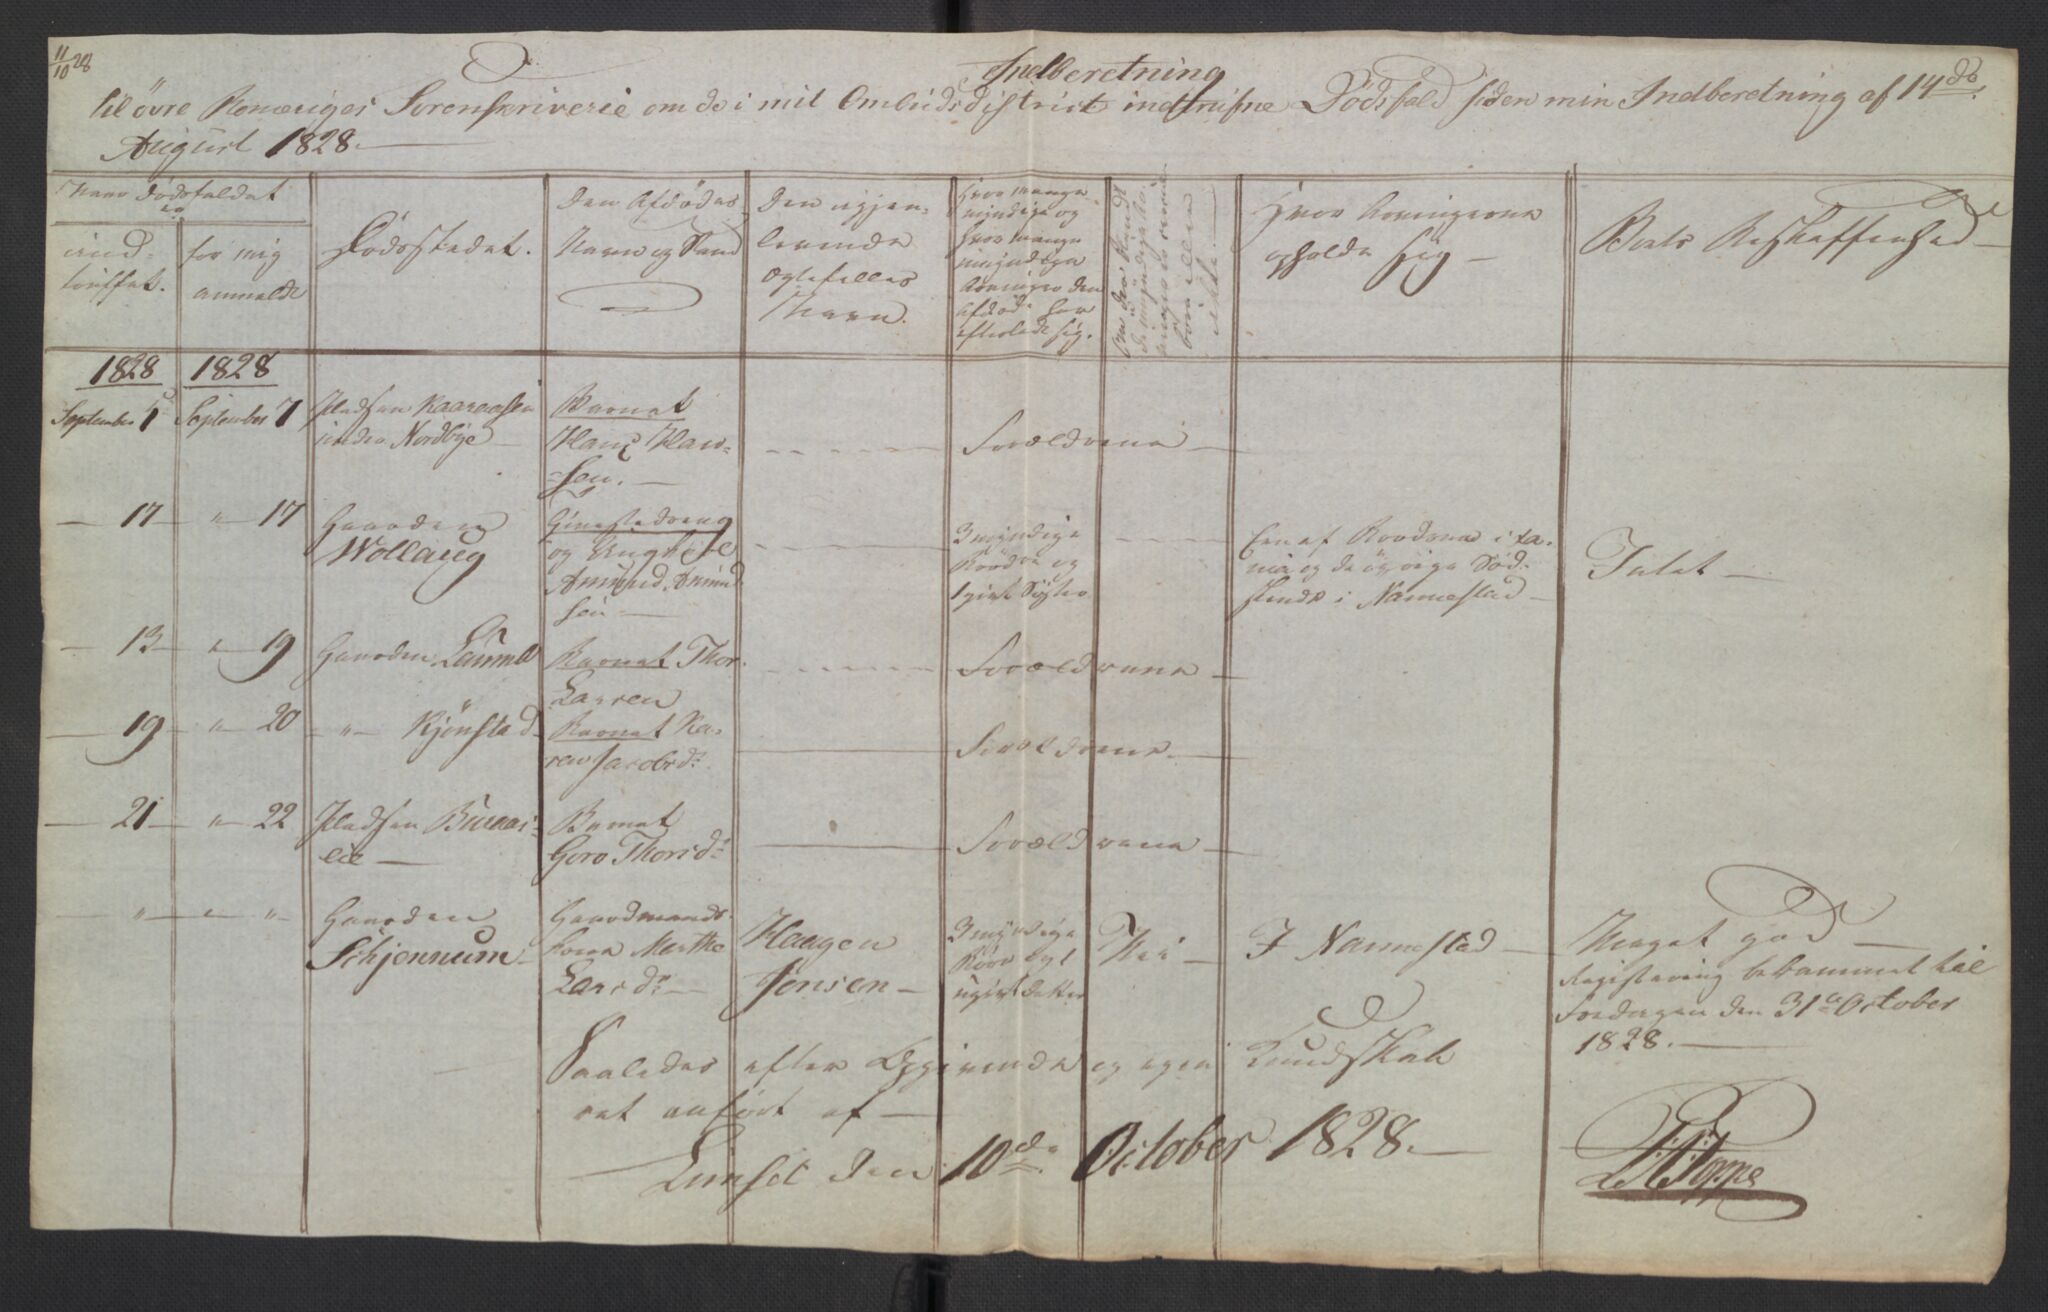 11/10 28
Indberetning
til övre Romeriges Sorenskriverie om de i mit Ombudsdistrict indtrufne Dödsfald siden min Indberetning af 14de
August 1828.
Naar Dödsfaldet
er
ind-
truffet.
for mig
anmeldt
Dödsstedet.
Den Afdödes
Navn og Stand
Den igjen-
levende
Ægtefelles
Navn.
Hvor mange
myndige og
hvor mange
umyndige
Arvinger den
Afdöde har
efterladt sig.
Hvor Arvingerne
opholde sig
Boets Beskaffenhed
1828 1828
September 5 September 7 Pladsen Kaaraasen
under Nordbye
Barnet
Hans Han-
sen.
Forældrene
17 " 17 Gaarden
Wollaug
og Ungkarl
Amund Amund-
sen
3 myndige
Brödre og
1 gift Söster
Een af Brödrene i
og de övrige Söd-
skende i Nannestad
Intet
13 " 19 Gaarden
Barnet Thor
Larsen
Forældrene
19 " 20 " Kjönstad
Barnet Ka-
ren Jacobsd:
Forældrene
21 " 22 Pladsen Buraas-
lie
Barnet
Goro Thorsd:
Forældrene
" " " Gaarden
Schjennum
Gaardmands-
kone Marthe
Larsd:
Haagen
Jensen
3 myndige
ugift datter
Nei
I Nannestad
Meget god
Registrering bekammet til
Fredagen den 31te October
1828.
Saaledes efter Opgivende og egen Kundskab
ret anfört af
den 10de October 1828.